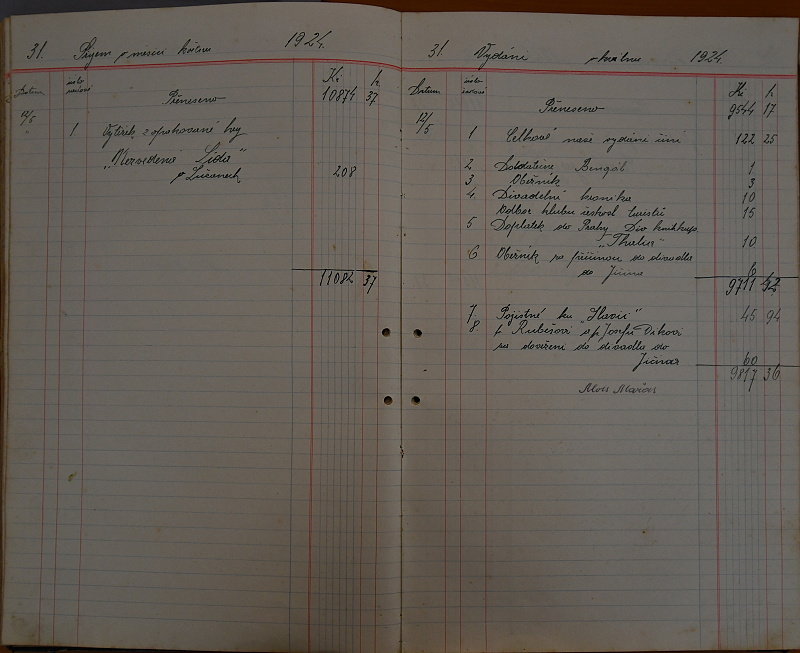 31. Příjem v měsíci květnu 1924.
Datum číslo Kč h
Přeneseno 10874 37
12/5
1 Výtěžek z opakované hry
"
v Lučanech 208
11082 37
31. Vydání v květnu 1924.
Datum číslo Kč h
Přeneseno 9544 17
12/5 1 Celkové naše vydání činí 122 25
2 Bengál 1
3 Oběžník 3
4. Divadelní kronika 10
Odbor klubu českosl turistů 15
5 Doplatek do Prahy Div knihkup.
"Thalia" 10
6 Oběžník za do divadla
do Jičína 6
9711 42
7. Pojistné ku "Slavii" 45 94
8. p Rubešovi a p. Josefu
za dovežení do divadla do
60
9817 36